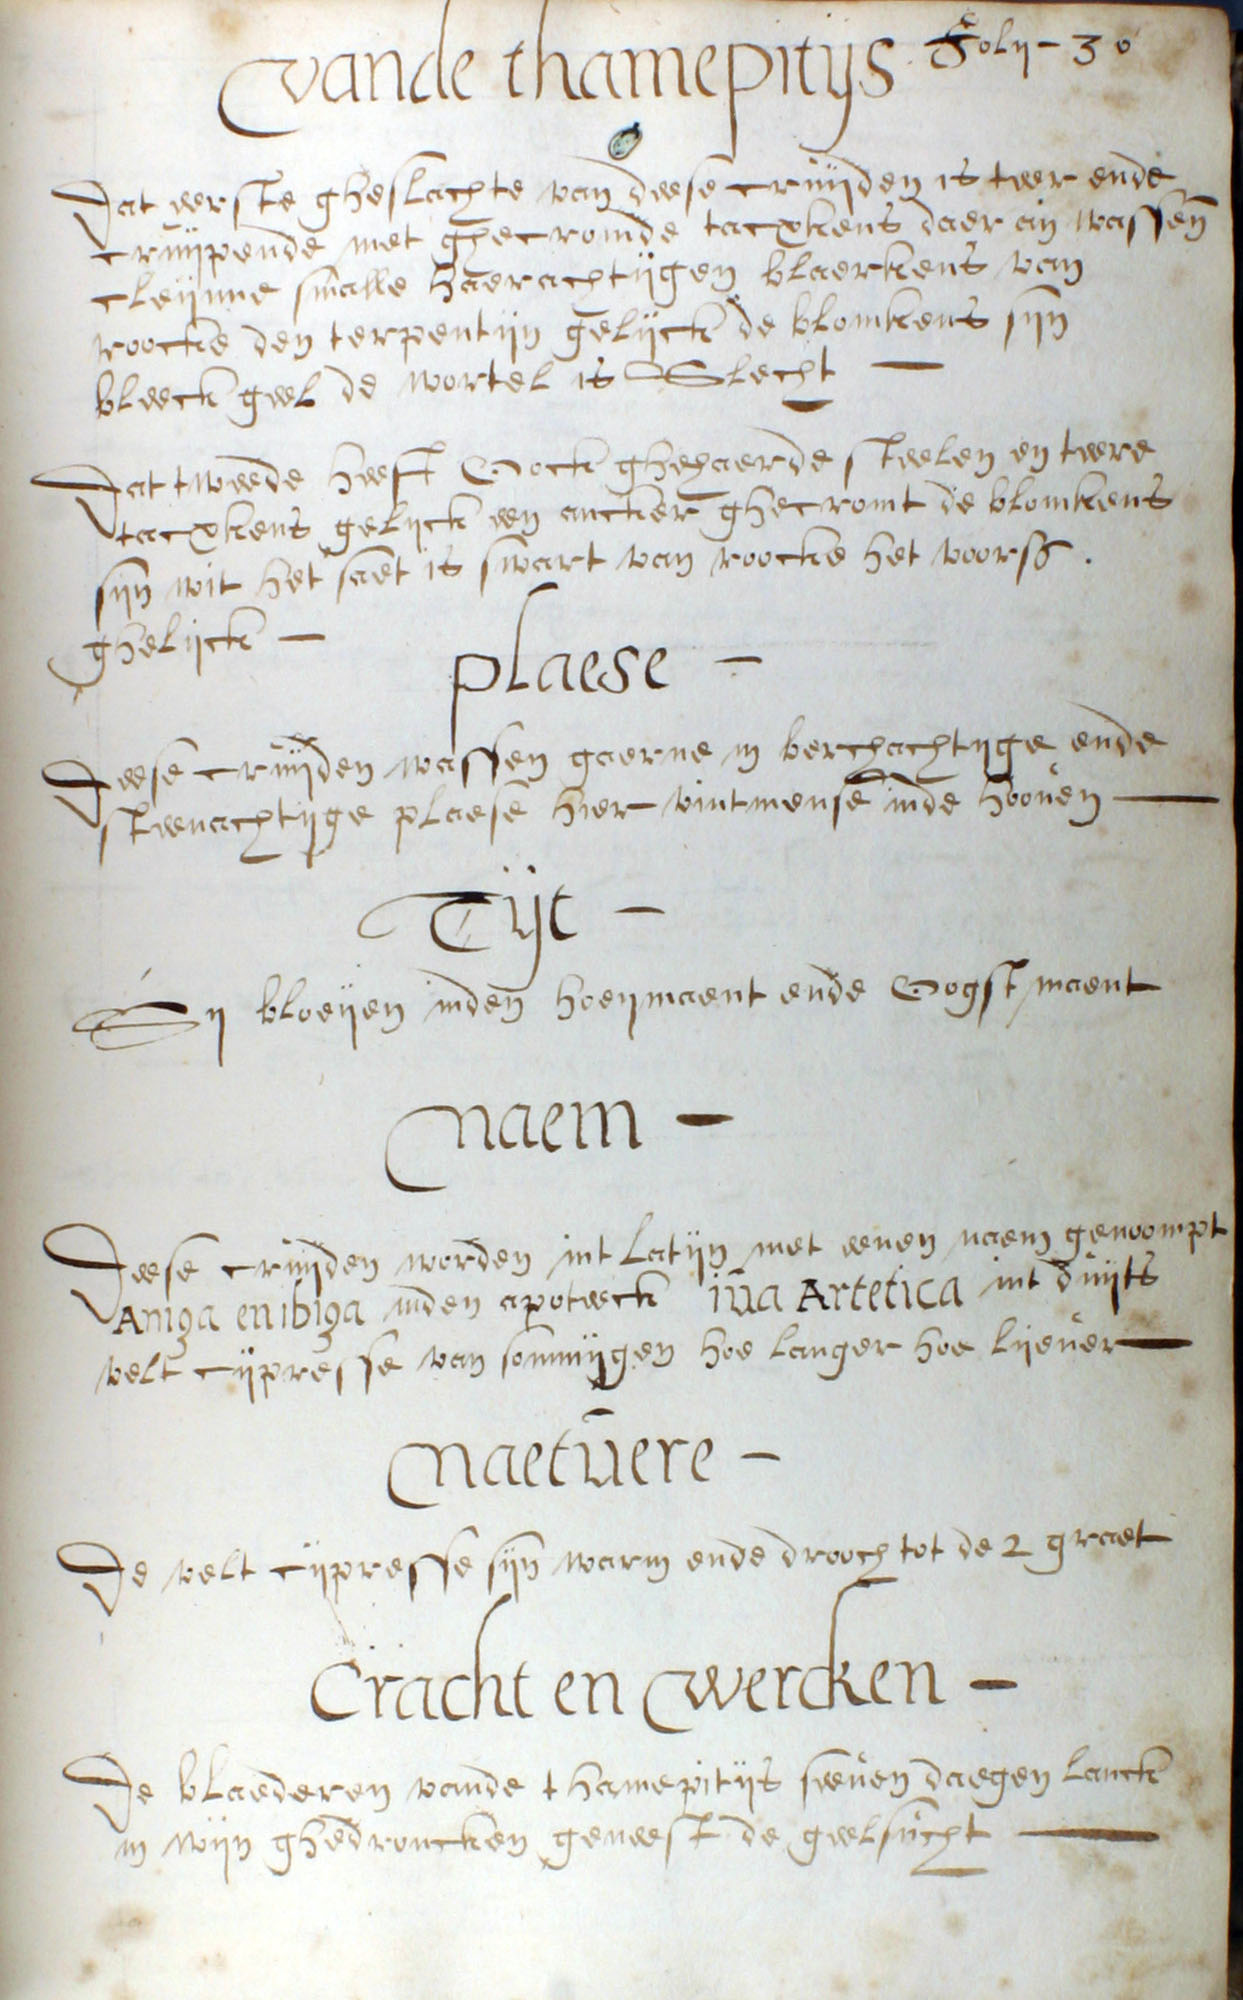 Folij - 30
vande thamepitijs
Dat eerste gheslachte van deese cruijden is teer ende
cruijpende met ghecromde tacxkens daer an wassen
cleijnne smalle haerachtijgen blaerkens van
roocke den terpentijn gelijck de blomkens sijn
bleeck geel de wortel is Slecht —
Dat tweede heeft Oock ghehaerde steelen en teere
tacxkens gelijck een ancker ghecromt de blomkens
sijn wit het saet is swart van roocke het voors .
ghelijck —
plaese —
Deese cruijden wassen gaerne in berchachtijge ende
steenachtijge plaese hier vintmense inde hooven —
Tijt —
Sij bloeijen inden hoeijmaent ende Oogstmaent
Naem —
Deese cruijden worden int latijn met eenen naem genoompt
Aniga en ibiga inden apoteeck iua Artetica int duijts
velt cijpresse van sommijgen hoe langer hoe lijever —
Naetuere —
De velt cijpresse sijn warm ende drooch tot de 2 graet
Cracht en Wercken —
De blaederen vande thamepitijs seeven daegen lanck
in wijn ghedroncken geneest de geelsucht —